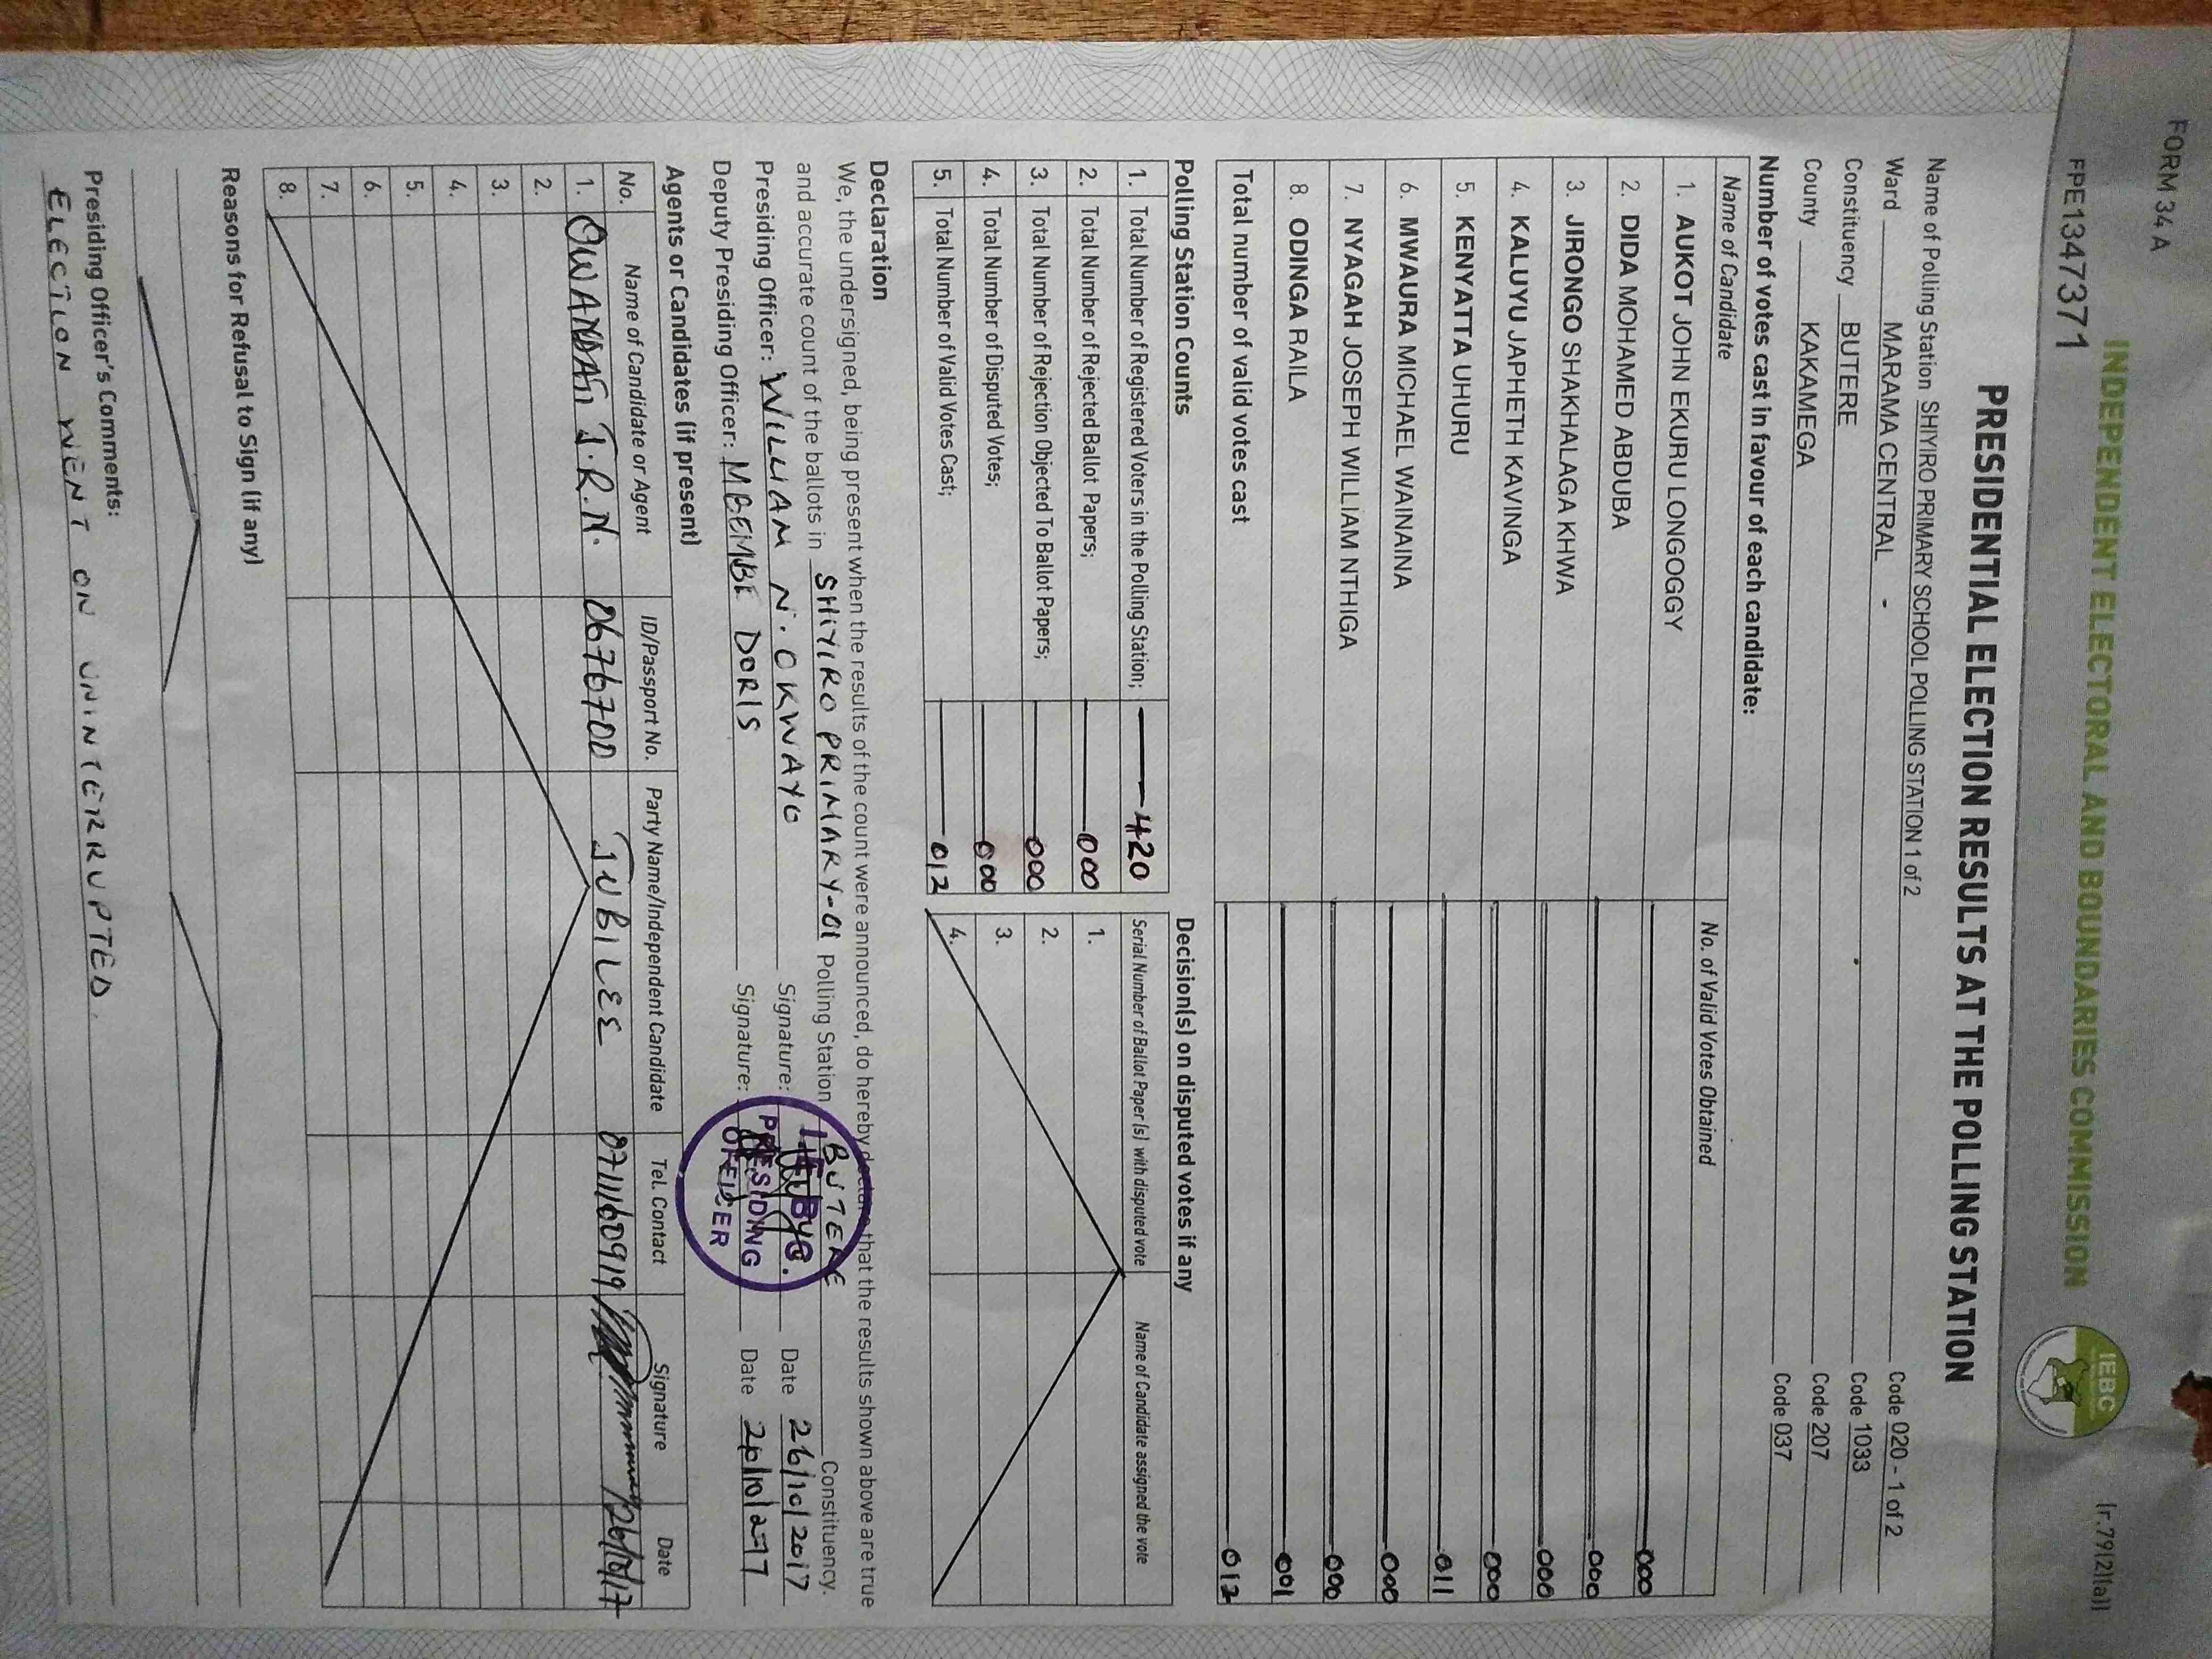 FORM 34 A
(r.79(2)(a))
INDEPENDENT ELECTORAL AND BOUNDARIES COMMISSION
IEBC
FPE1347371
PRESIDENTIAL ELECTION RESULTS AT THE POLLING STATION
Name of Polling Station SHIYIRO PRIMARY SCHOOL POLLING STATION 1 of 2 Code 020 - 1 of 2
Ward MARAMA CENTRAL - Code 1033
Constituency BUTERE Code 207
County KAKAMEGA Code 037
Number of votes cast in favour of each candidate:
Name of Candidate No. of Valid Votes Obtained
1. AUKOT JOHN EKURU LONGOGGY 000
2. DIDA MOHAMED ABDUBA 000
3. JIRONGO SHAKHALAGA KHWA 000
4. KALUYU JAPHETH KAVINGA 000
5. KENYATTA UHURU 011
6. MWAURA MICHAEL WAINAINA 000
7. NYAGAH JOSEPH WILLIAM NTHIGA 000
8. ODINGA RAILA 001
Total number of valid votes cast 012
Polling Station Counts Decision(s) on disputed votes if any
1. Total Number of Registered Voters in the Polling Station; 420 Serial Number of Ballot Paper (s) with disputed vote Name of Candidate assigned the vote
2. Total Number of Rejected Ballot Papers; 000 1.
3. Total Number of Rejection Objected To Ballot Papers; 000 2.
4. Total Number of Disputed Votes; 000 3.
5. Total Number of Valid Votes Cast; 012 4.
Declaration
We, the undersigned, being present when the results of the count were announced, do hereby declare that the results shown above are true
and accurate count of the ballots in SHIYIRO PRIMARY-01 Polling Station BUTERE Constituency.
Presiding Officer: WILLIAM N. OKWAYO Signature: Date 26/10/2017
Deputy Presiding Officer: MBEMBE DORIS Signature: Date
PRESIDING
OFFICER
Agents or Candidates (if present)
No. Name of Candidate or Agent ID/Passport No. Party Name/Independent Candidate Tel. Contact Signature Date
1. J.R.N. 0676700 JUBILEE 0711160919 26/10/17
2.
3.
4.
5.
6.
7.
8.
Reasons for Refusal to Sign (if any)
Presiding Officer's Comments:
ELECTION WENT ON UNINTERRUPTED.